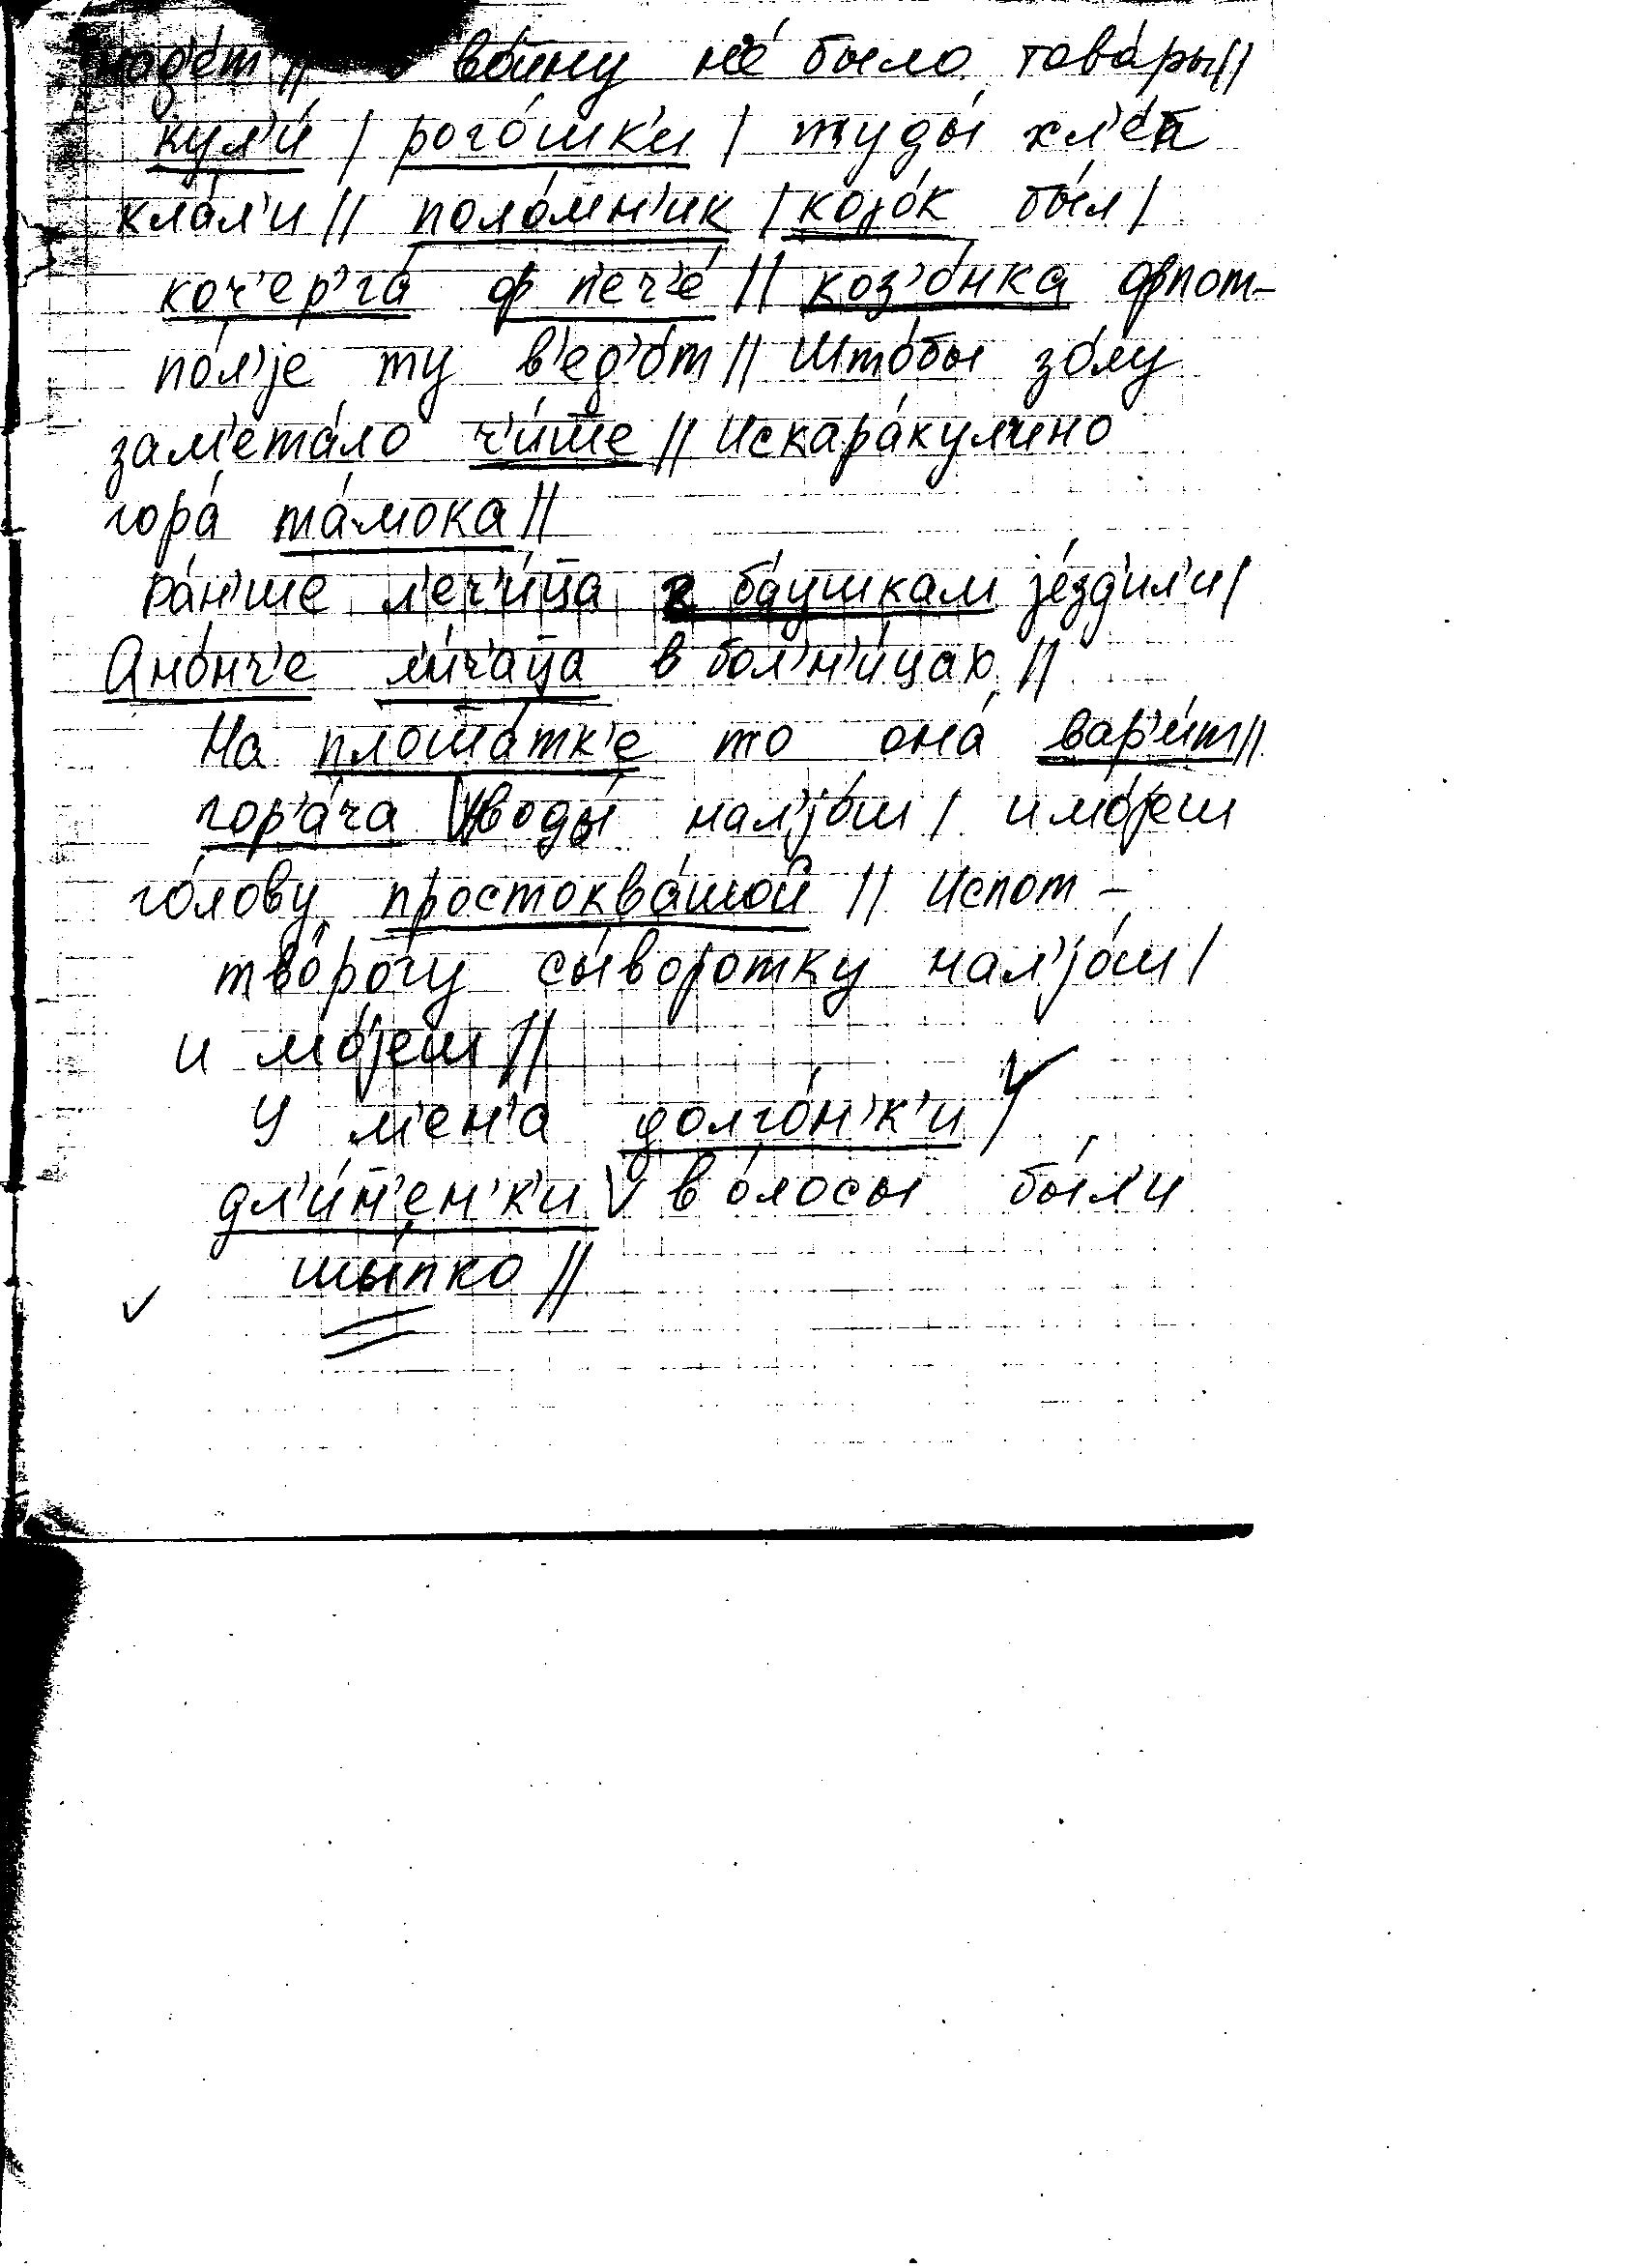 во́йну не́ было това́ры//
кул'и́ / рого́шк'и / туды́ хл'е́п
кла́л'и // поло́мн'ик / којо́к бы́л /
коч'ер'га́ ф п'еч'е́ // коз'о́нка фпот-
по́л'је ту в'ед'о́т // што́бы зо́лу
зам'ета́ло ч'и́ше // Искара́кулино
гора́ та́мока //
ра́н'ше л'еч'и́ца к ба́ушкам је́зд'ил'и /
Ано́нч'е л'и́ч'аца в бол'н'и́цах //
На плоша́тк'е то она́ вар'и́т //
гор'а́ча воды́ нал'јо́ш / и мо́јеш
го́лову простоква́шой // Испот-
творогу сы́воротку нал'јо́ш /
и мо́јеш //
У м'ен'а́ долго́н'к'и /
дл'и́н'ен'к'и во́лосы бы́л'и
шы́пко //